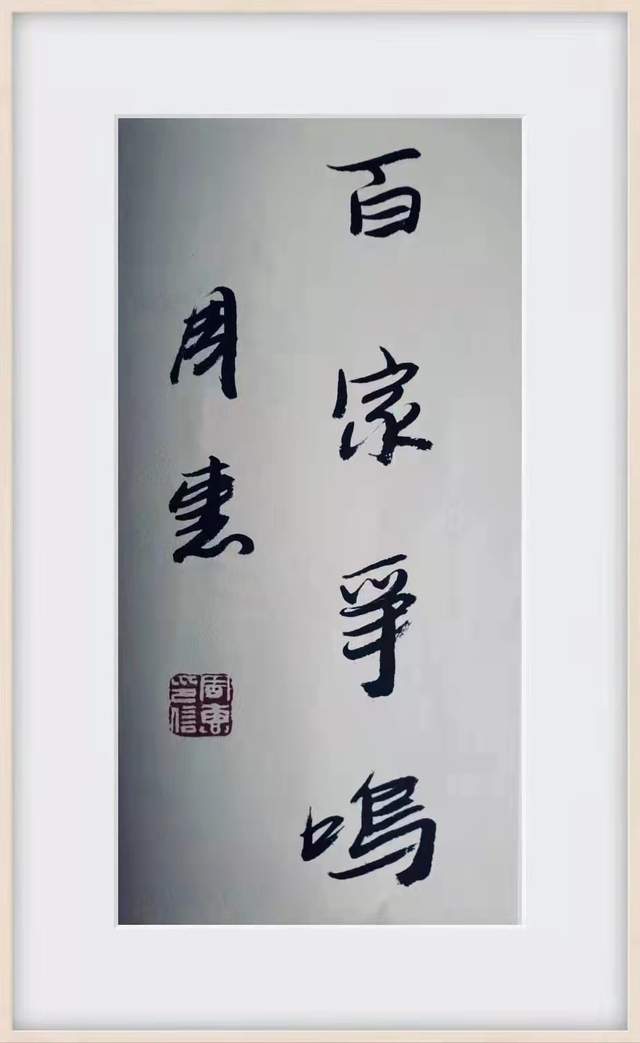 百家爭鳴
周惠
周惠印信